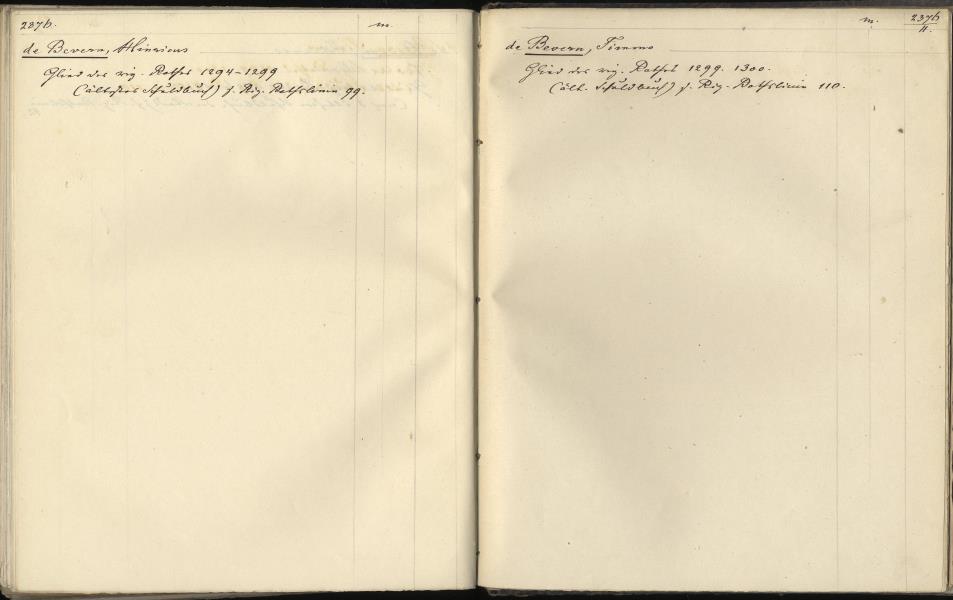 237b. m.
de Bevern, Hinricus
Glied des rig. Rathes 1294-1299
(ältestes Schuldbuch) s. Rig. Rathslinie 99.
m. 237b
II.
de Bevern, Timmo
Glied des rig. Rathes 1299. 1300.
(ält. Schuldbuch) s. Rig. Rathslinie 110.